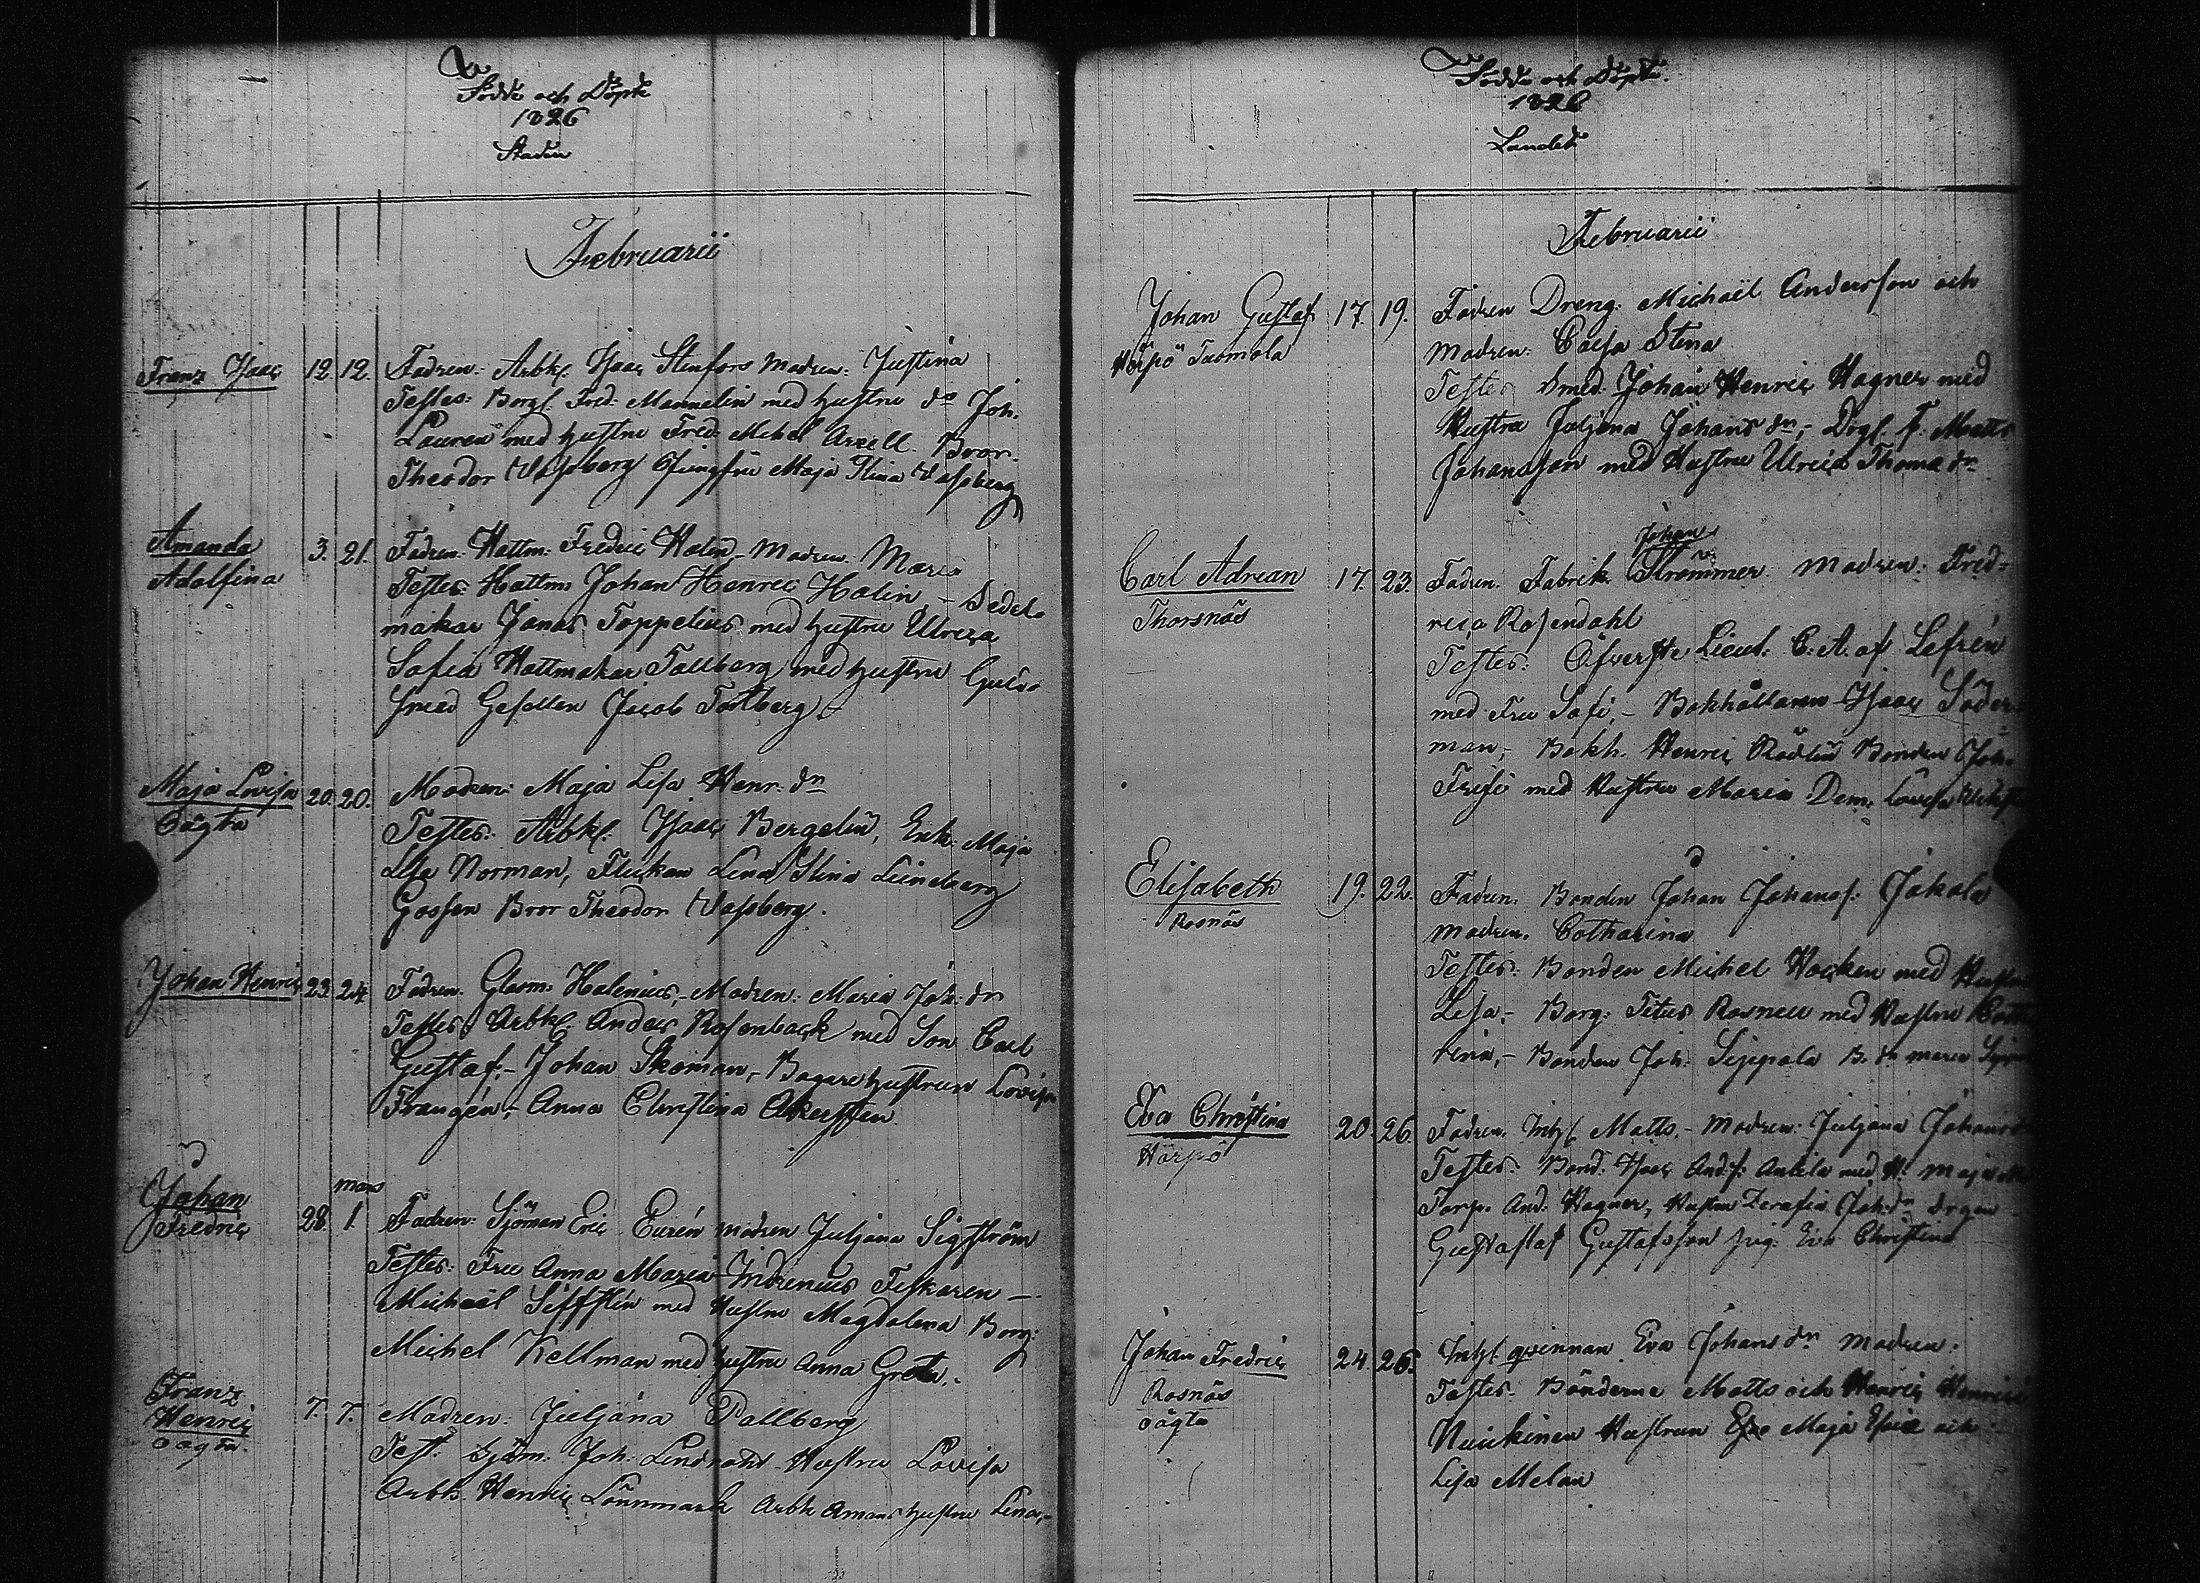 Födde och Döpte
1826
Staden
Februarii
Franz Isaac 12. 12. Fadren: Arbk. Isaac Stenfors Madren: Justina
Testes: Borg. Fred. Mannelin med hustru do Joh.
Lauren med hustru Fred. Mehel Axell. Bror
Theodor Wassberg Jungfru Maja Stina Wassberg
Amanda 3. 21. Fadren: Hattm: Fredric Halin - Madren: Maria
Adolfina Testes: Hattm: Johan Henric Halin - Sadel-
makar Jonas Toppelius med hustru Ulrica
Sofia Hattmakar Tallberg med hustru Guld-
smed Gesällen Jacob Tallberg
Maja Lovisa 20. 20. Modren: Maja Lisa Henr. dr
Oägta Testes: Arbk. Isaac Bergelin, Enk. Maja
Lisa Norman, Flickan Lena Stina Lundberg
Gossen Bror Theodor Wassberg.
Johan Henric 23. 24 Fadren: Glasm: Halenius, - Madren: Maria Joh: dr
Testes: Arbk. Anders Rosenback med Son Carl
Gustaf, - Johan Skoman, - Bagare hustrun Lovisa
Frangén, - Anna Christina Åkersten
Johan mars
Fredric 28. 1. Fadren: Sjöman Eric Eurén modren Juljana Sigström
Testes: Fru Anna Maria Indrenius Fiskaren -
Michael Siffstén med Hustru Magdalena Borg:
Michel Kellman med hustru Anna Greta.
Franz
Henric 7. 7. Madren: Juljana Pallberg
oägta. Test: Sjöm: Joh: Lindroth Hustru Lovisa
Arbk. Henric Lönnmark Arbk Amans hustru Lena, -
Födde och Döpte.
1826
Landet
Februarii
Johan Gustaf 17. 19. Fadren Dreng. Michaël Andersson och
Härpö Tuomola Madren: Caisa Stina
Testes Smed: Johan Henric Hagner med
Hustru Juljana Johans dr, - Drgl. F. Matts
Johansson med Hustru Ulrica Thoma dr
Johan
Carl Adrian 17. 23. Fadren: Fabrik. Strömmer Madren: Fred-
Thorsnäs rica Rosendahl
Testes: Öfverste Lieut: C. A. af Lefrén
med Fru Sofi, - Bokhållaren Isaac Söder-
man, - Bokh. Henric Rådlin Bonden Joh.
Frisi med Hustru Maria Dem. Lovisa
Elisabeth 19. 22. Fadren: Bonden Johan Johans: Jakola
Rosnäs Madren: Catharina
Testes: Bonden Michel Hocken med Hustru
Lisa, - Borg: Titus Rosneu med Hustru
rina, - Bonden Joh: Seppala B. dr maria
Eva Christina 20. 26. Fadren: Inhl Matts, - Modren: Juljana Johans
Härpö Testes: Bond: Isaac And:s: Antila med H. Maja
Torp. And: Hagner, Hustru Serafia Joh:dr drgen
Gustafaf Gustafsson pig: Eva Christina
Johan Fredric 24. 26. Inhl qvinnan Eva Johans dr madren:
Rosnäs Testes: Bönderne Matts och Henric
oägta Nuickinen Hustrun Eva Maja Lisa och
Lisa Melan